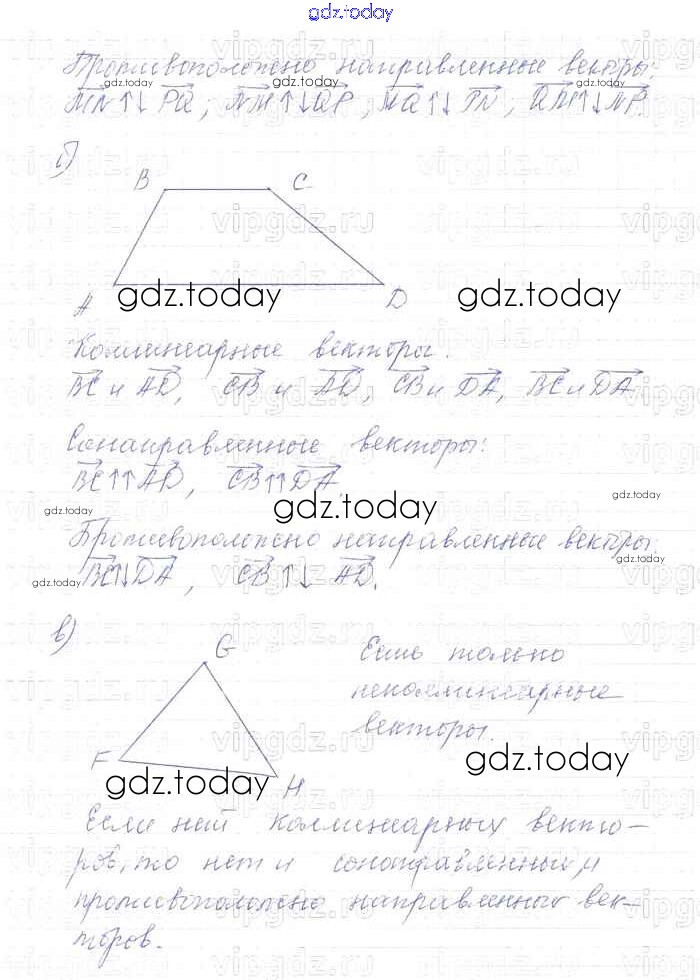 gdz.today
Противоположно направленные векторы:
MN↑↓ PQ, NM↑↓QP, MQ↑↓ PN, QM↑↓NP.
б)
B C
A D
gdz.today gdz.today
Коллинеарные векторы:
BC и AD, CB и AD, CB и DA, BC и DA
Сонаправленные векторы:
BC↑↑AD, CB↑↑DA,
gdz.today
Противоположно направленные векторы:
BC↑↓DA, CB↑↓ AD.
в)
G
Есть только
неколлинеарные
векторы.
F
H
gdz.today gdz.today
Если нет коллинеарных векто-
ров, то нет и сонаправленных, и
противоположно направленных век-
торов.